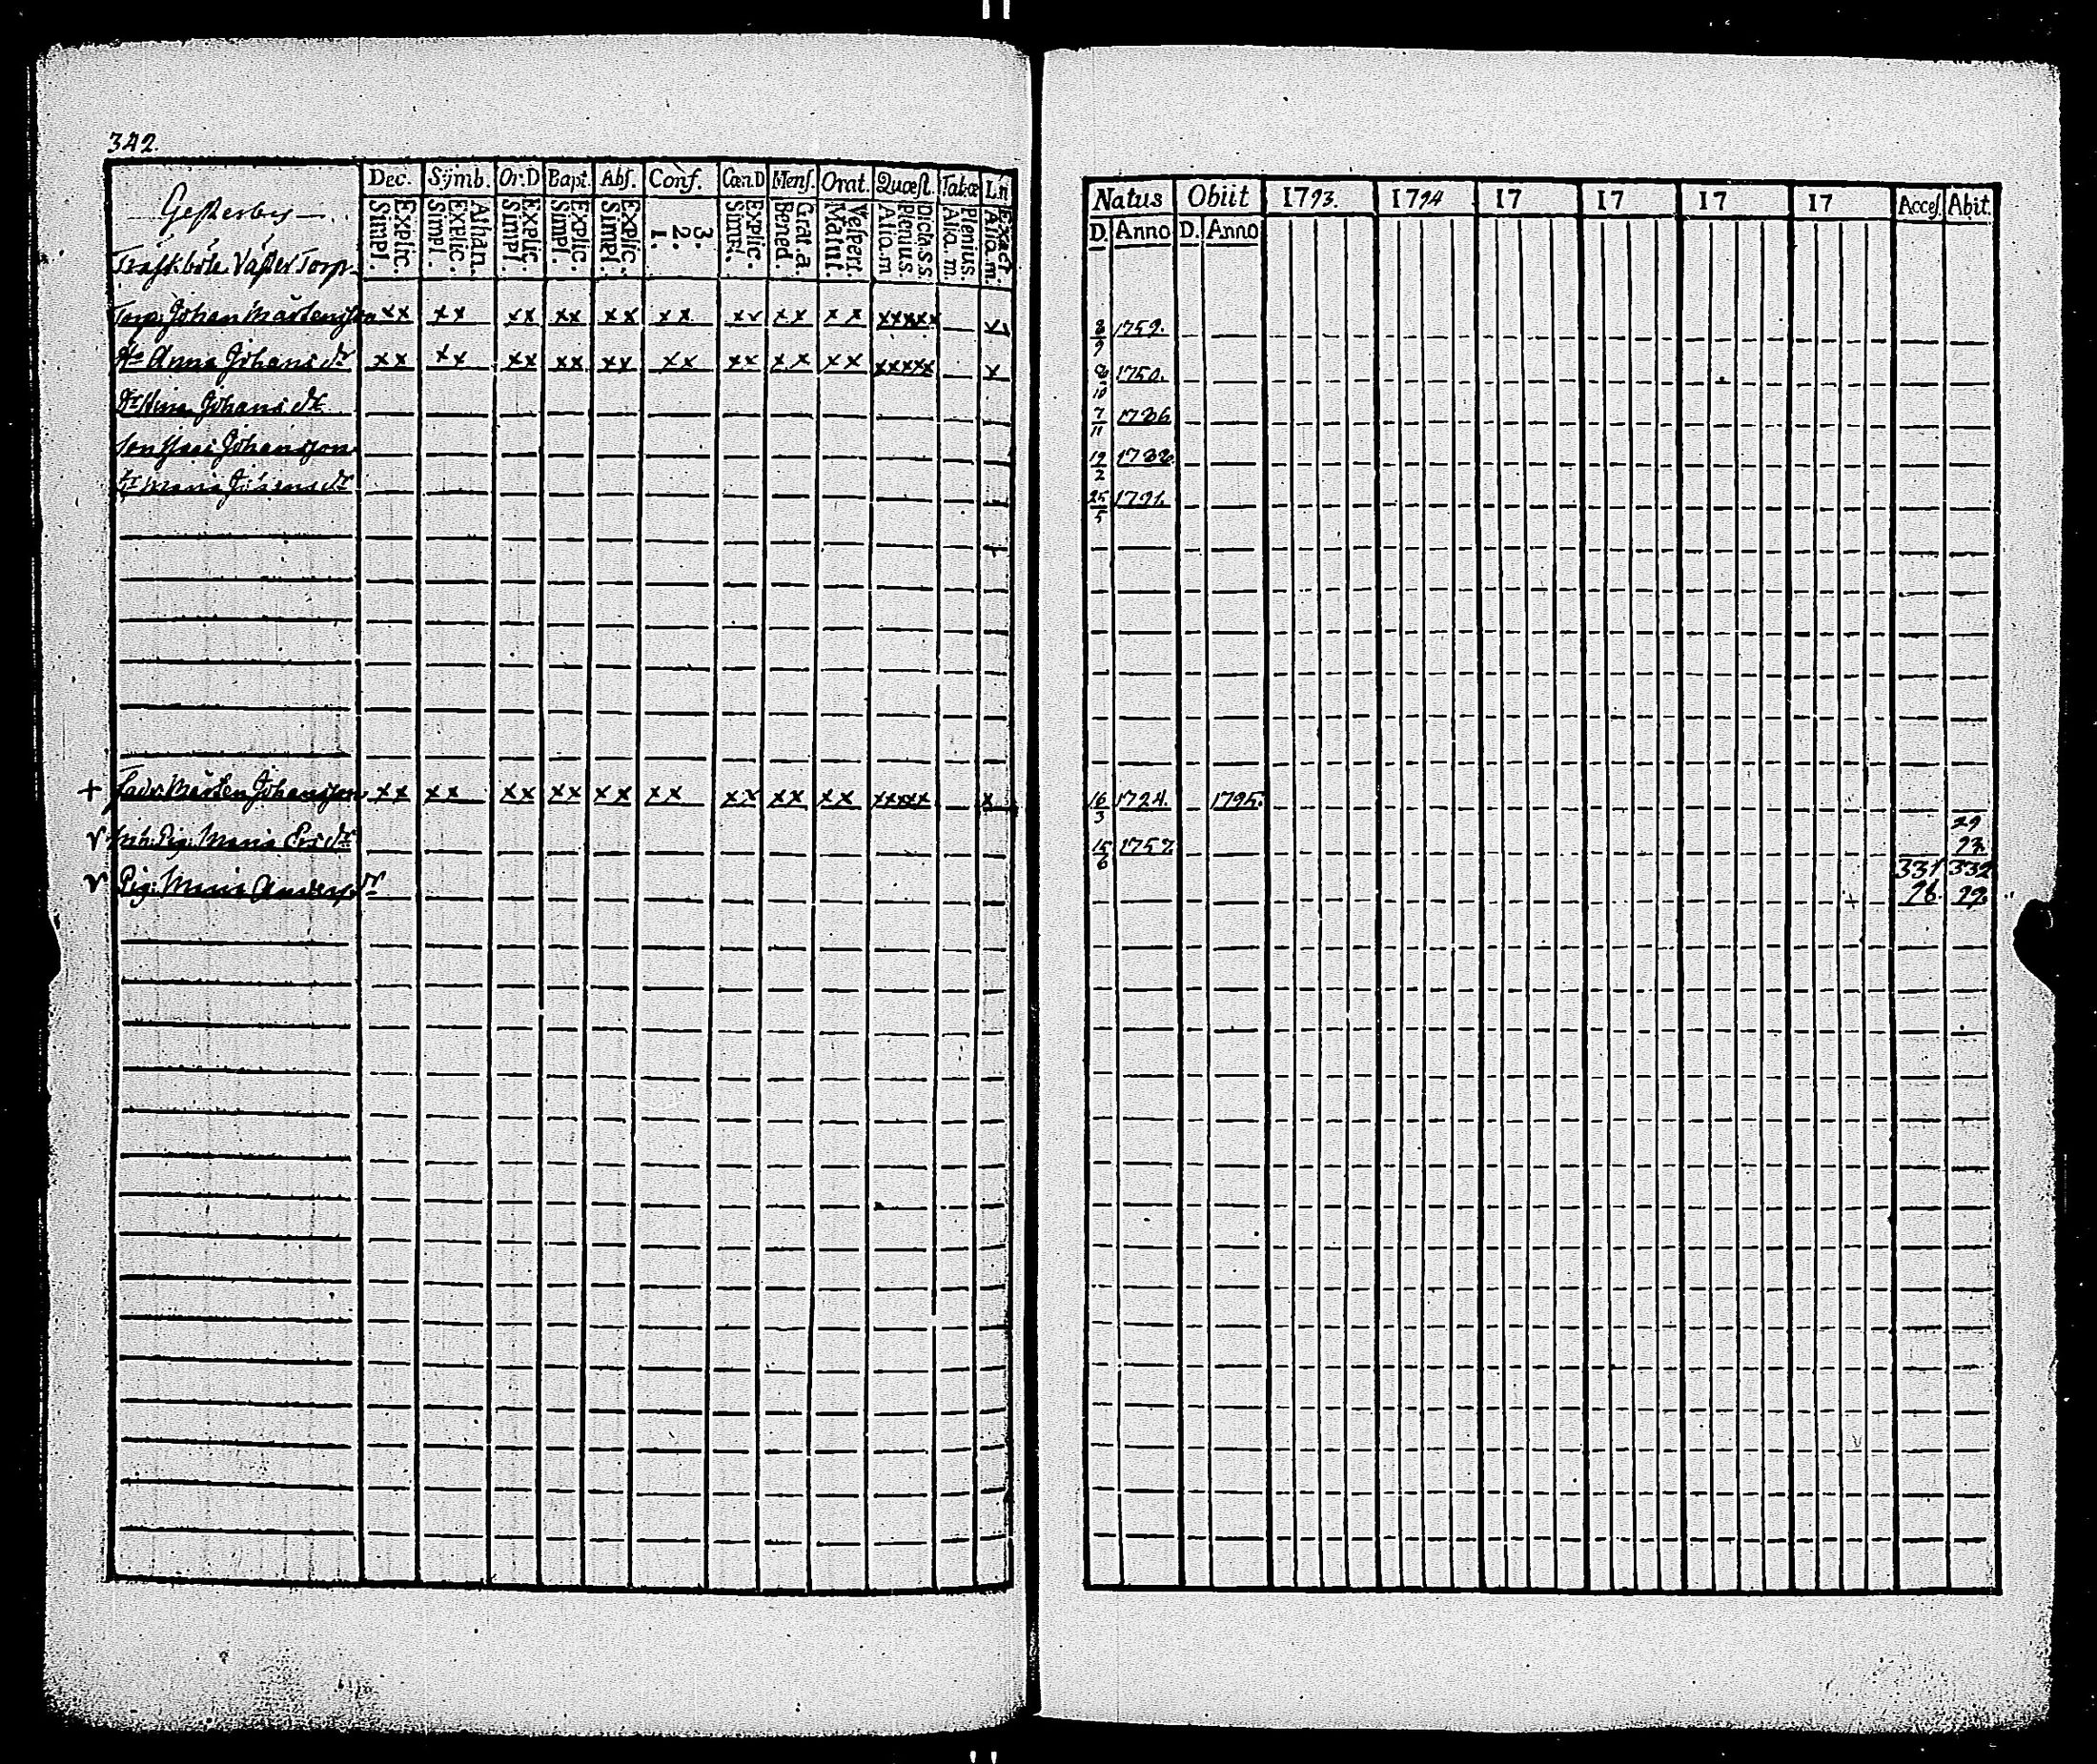 342.
Dec. Symb. Or.D Bapt. Abs. Conf. Cœn.D Mens. Orat. Quæst. Tab.œ L.n
Gesterby
Explic. Simpl. Athan. Explic. Simpl. Explic. Simpl. Explic. Simpl. Explic. Simpl. 3. 2. 1. Explic. Simpl. Grat.a. Bened. Vespert. Matut. Dicta.s.s. Plenius. Alio.m Plenius. Alio.m. Exact. Alio.m.
Träskböle Väster Torp
Torp. Johan Mårtensson xx xx xx xx xx xx xx xx xx xxxxx x
H:u Anna Johans dr xx xx xx xx xx xx xx xx xx xxxxx x
Dr Johans dr
Son Johansson
Dr Maria Johans dr
+ Fadr Mårten Johansson xx xx xx xx xx xx xx xx xx xxxxx x
Pig. Maria dr
Pig. Maria Anders dr
Natus Obiit 1793. 1794 17 17 17 17 Acces. Abit.
D. Anno D. Anno
8/9 1759.
8/10 1750.
7/11 1786
19/2 1788.
25/5 1791.
16/3 1724. 1795.
15/6 1757 29 93.
331 332
98. 99.